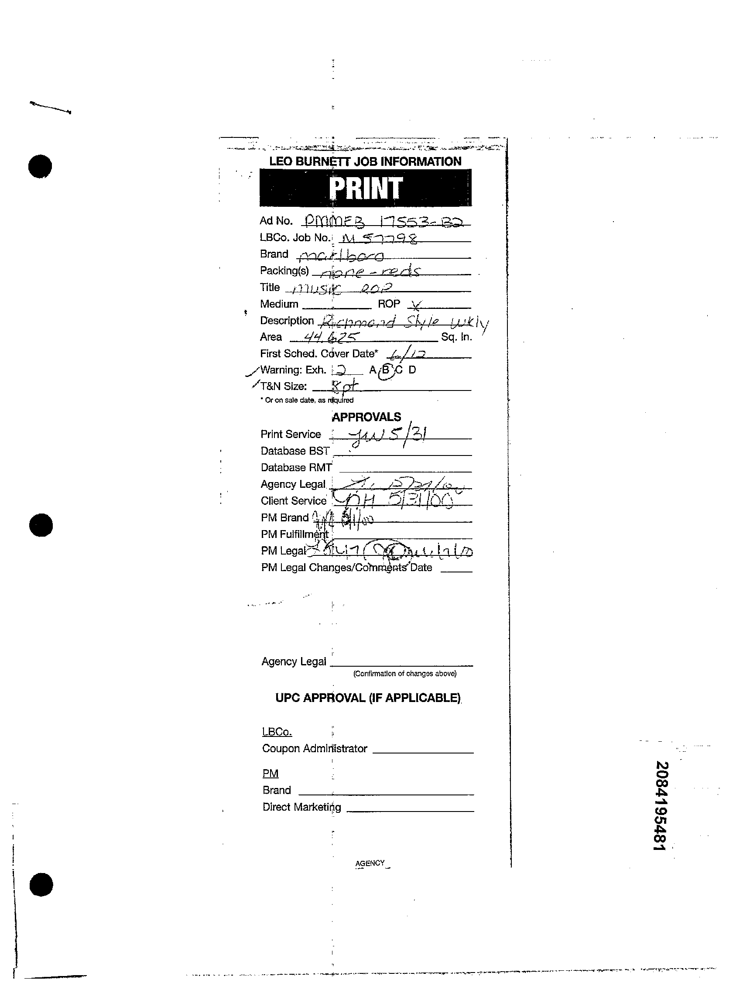 LEO BURNETT JOB INFORMATION
PRINT
Ad No. PMMEB 17553-B2
LBCo. Job No. M 57798
Brand marlboro
Packing(s) none - reds
Title music 202
Medium ROP X
Description Richmond Style Wkly
Area 44.625 Sq. In.
First Sched. Cover Date* 6/12
Warning: Exh. 2 A B C D
T&N Size: 8pt
* Or on sale date, as required
APPROVALS
Print Service JW 5/31
Database BST
Database RMT
Agency Legal
Client Service 5/31/00
PM Brand
PM Fulfillment
PM Legal
PM Legal Changes/Comments Date
Agency Legal
(Confirmation of changes above)
UPC APPROVAL (IF APPLICABLE)
LBCo.
Coupon Administrator
PM
Brand
Direct Marketing
AGENCY
2084195481